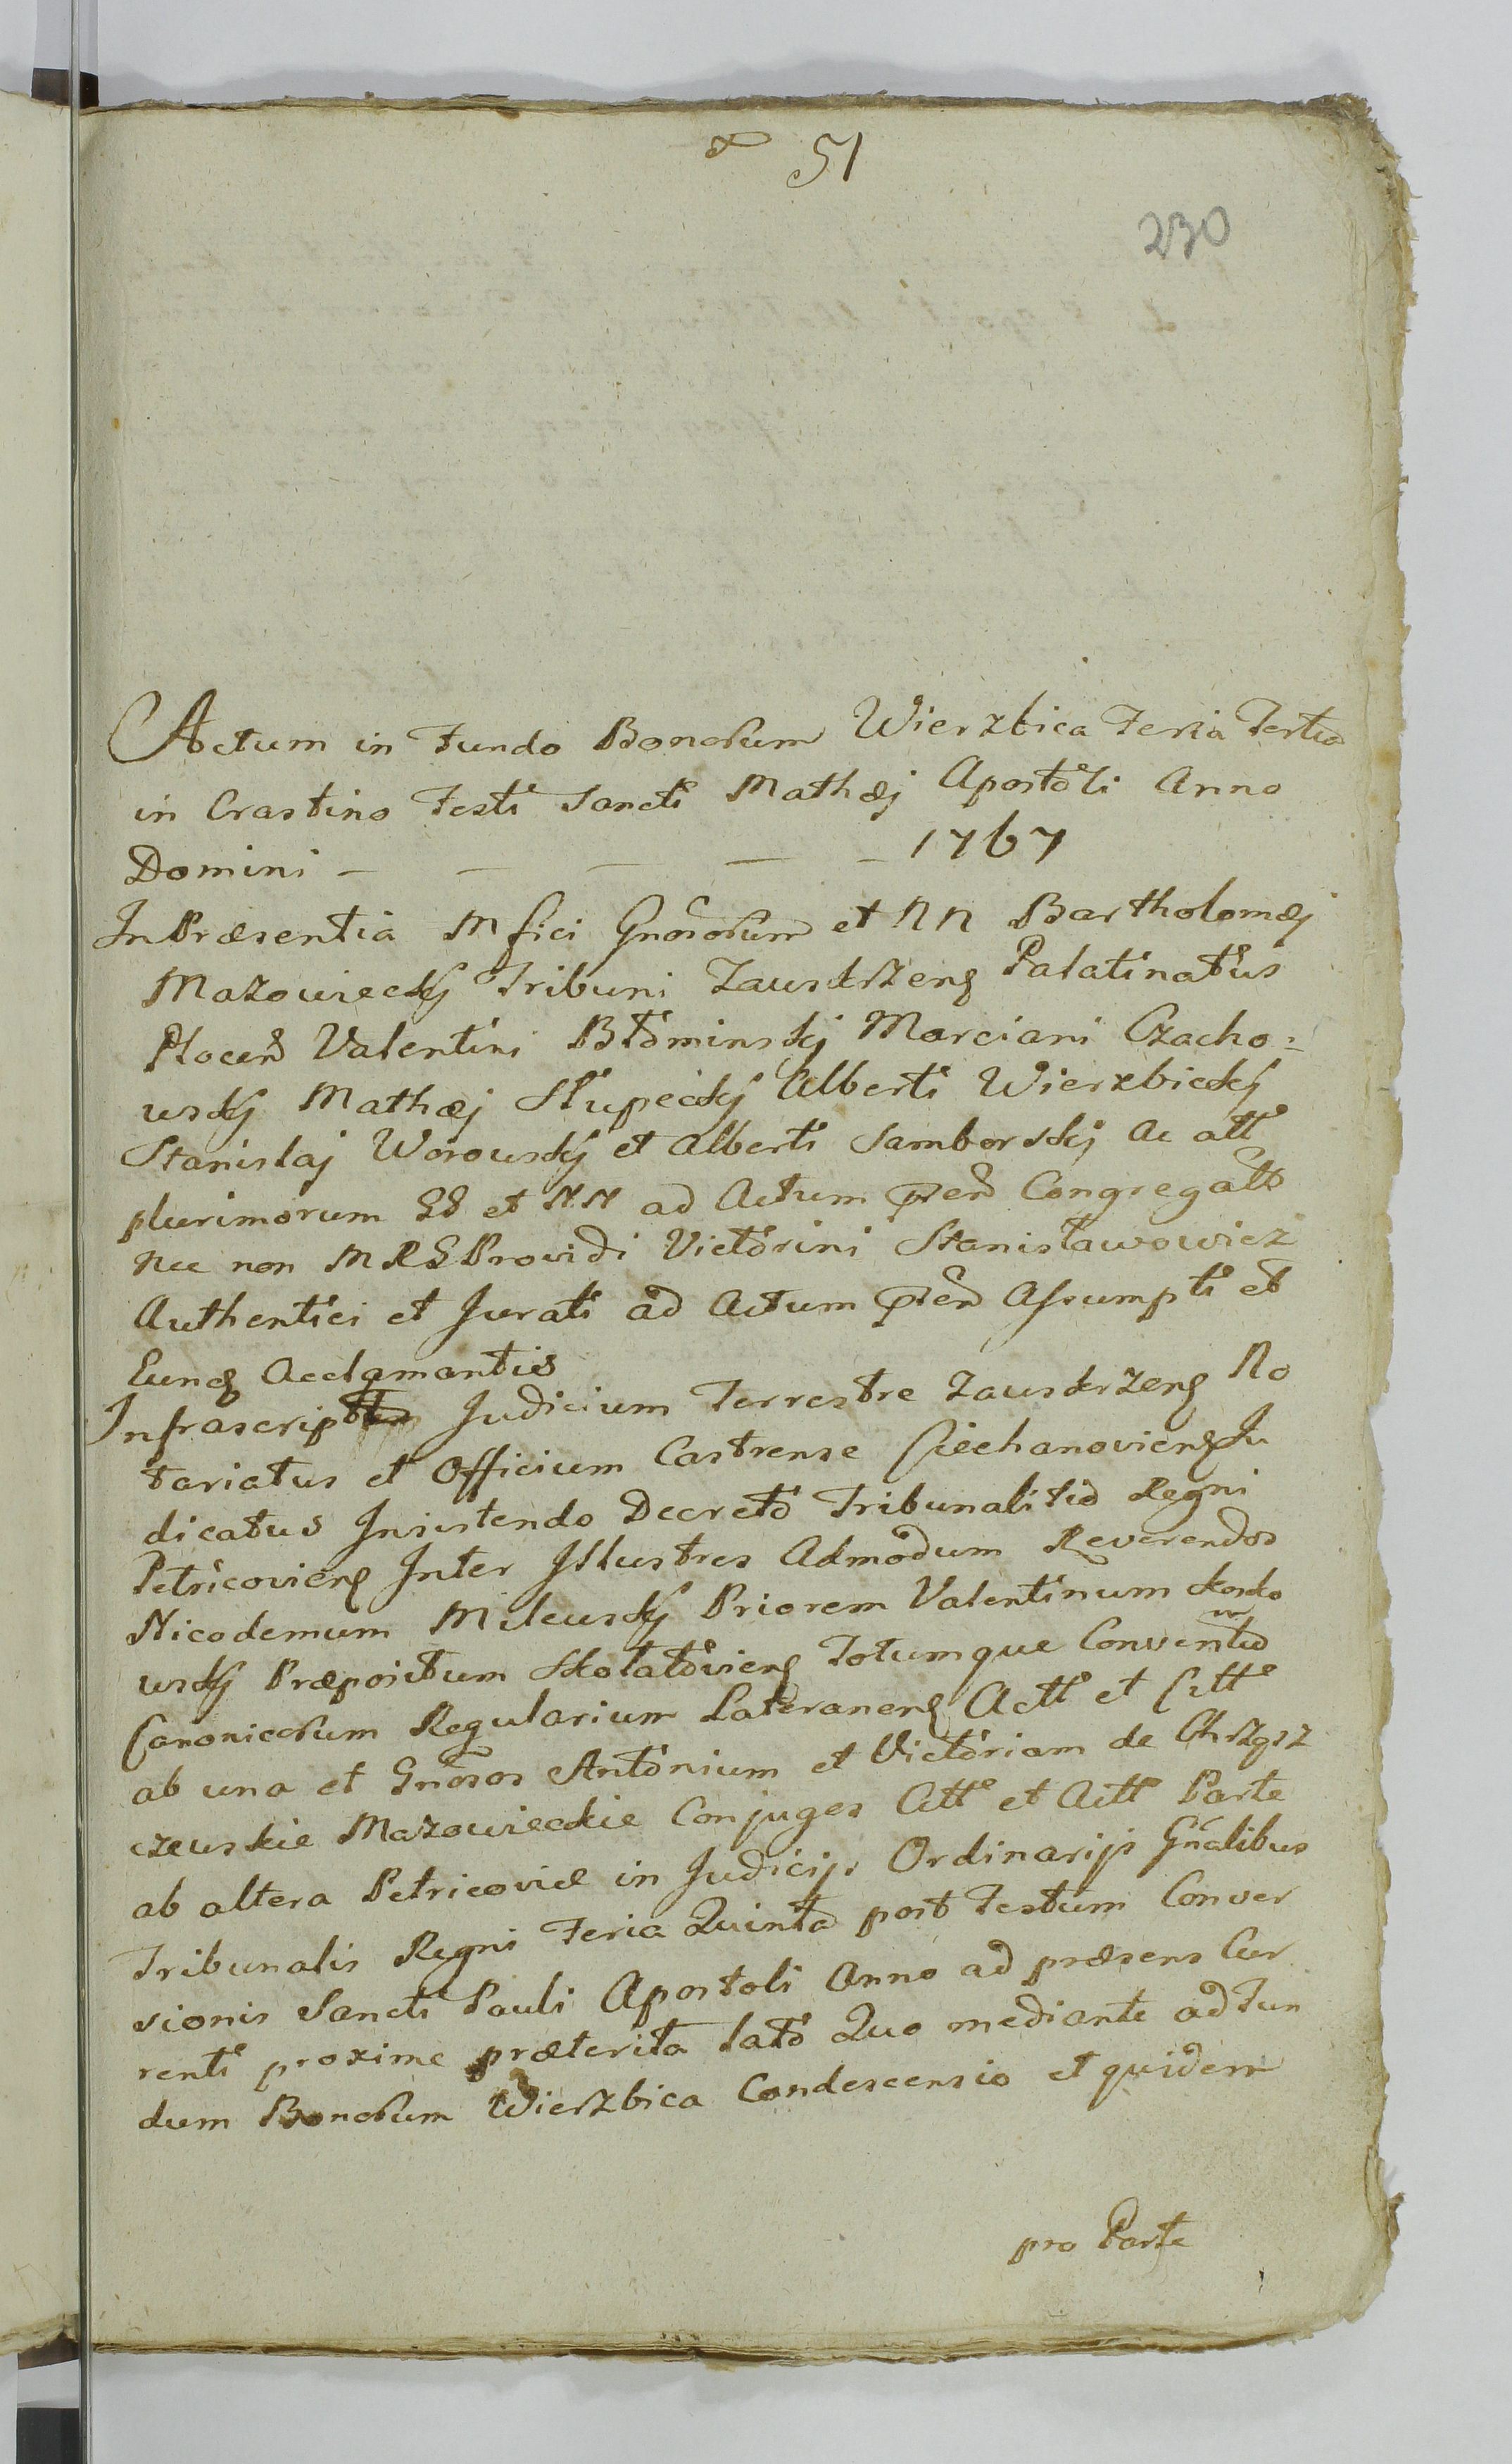 51
230
Actum in Fundo Bonorum Wierzbica Feria Tertia
in Crastino Festi Sancti Mathæj Apostoli Anno
Domini — — — — — 1767
In Præsentia Mfici Gnosorum et NN Bartholomæj
Mazowieckÿ Tribuni Zawskrzenş Palatinatus
Płocen̄ Valentini Błominskj Marciani Czacho=
wskÿ Mathæj Słupeckÿ Alberti Wierzbickÿ
Stanislaj Worowskÿ et Alberti Samborskj Ac all
plurimorum GG et NN ad Actum præn̄ Congregatt
Nec non MRS Providi Victorini Stanisławowicz
Authentici et Jurati ad Actum præn̄ Assumpti et
Eunđ Acclamantis
Infrascriptum Judicium Terrestre Zawskrzenş No
tariatus et Officium Castrense Ciechanovienş Ju
dicatus Insistendo Decreto Tribunalitio Regni
Petricovienş Inter Illustres Admodum Reverendos
Nicodemum Milewskÿ Priorem Valentinum
wskÿ Præpositum Skołatovienş Totumque Conventum
Canonicorum Regularium Lateranenş Actt et Citt
ab una et Gnosos Antonium et Victoriam de Chrząsz
czewskie Mazowieckie Conjuges Citt et Actt Parte
ab altera Petricoviæ in Judicijs Ordinarijs Gnalibus
Tribunalis Regni Feria Quinta post Festum Conver
sionis Sancti Pauli Apostoli Anno ad præsens Cur
renti proxime præterita lato Quo mediante ad Fun
dum Bonorum Wierzbica Condescensio et quidem
pro Parte